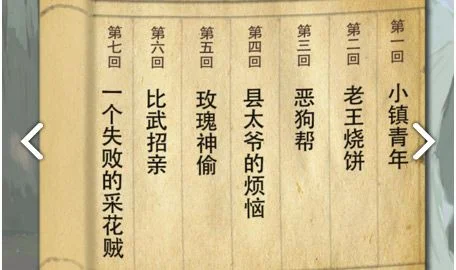 第一回 小镇青年
第二回 老王烧饼
第三回 恶狗帮
第四回 县太爷的烦恼
第五回 玫瑰神偷
第六回 比武招亲
第七回 一个失败的采花贼